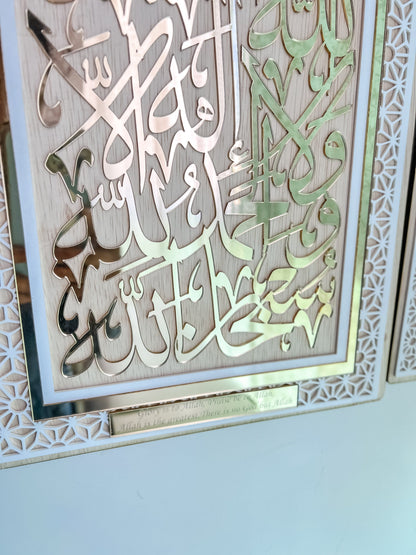 سبحان الله
والحمد لله
ولا إله إلا
الله
Glory is to Allah, Praise be to Allah,
Allah is the greatest. There is no God but Allah